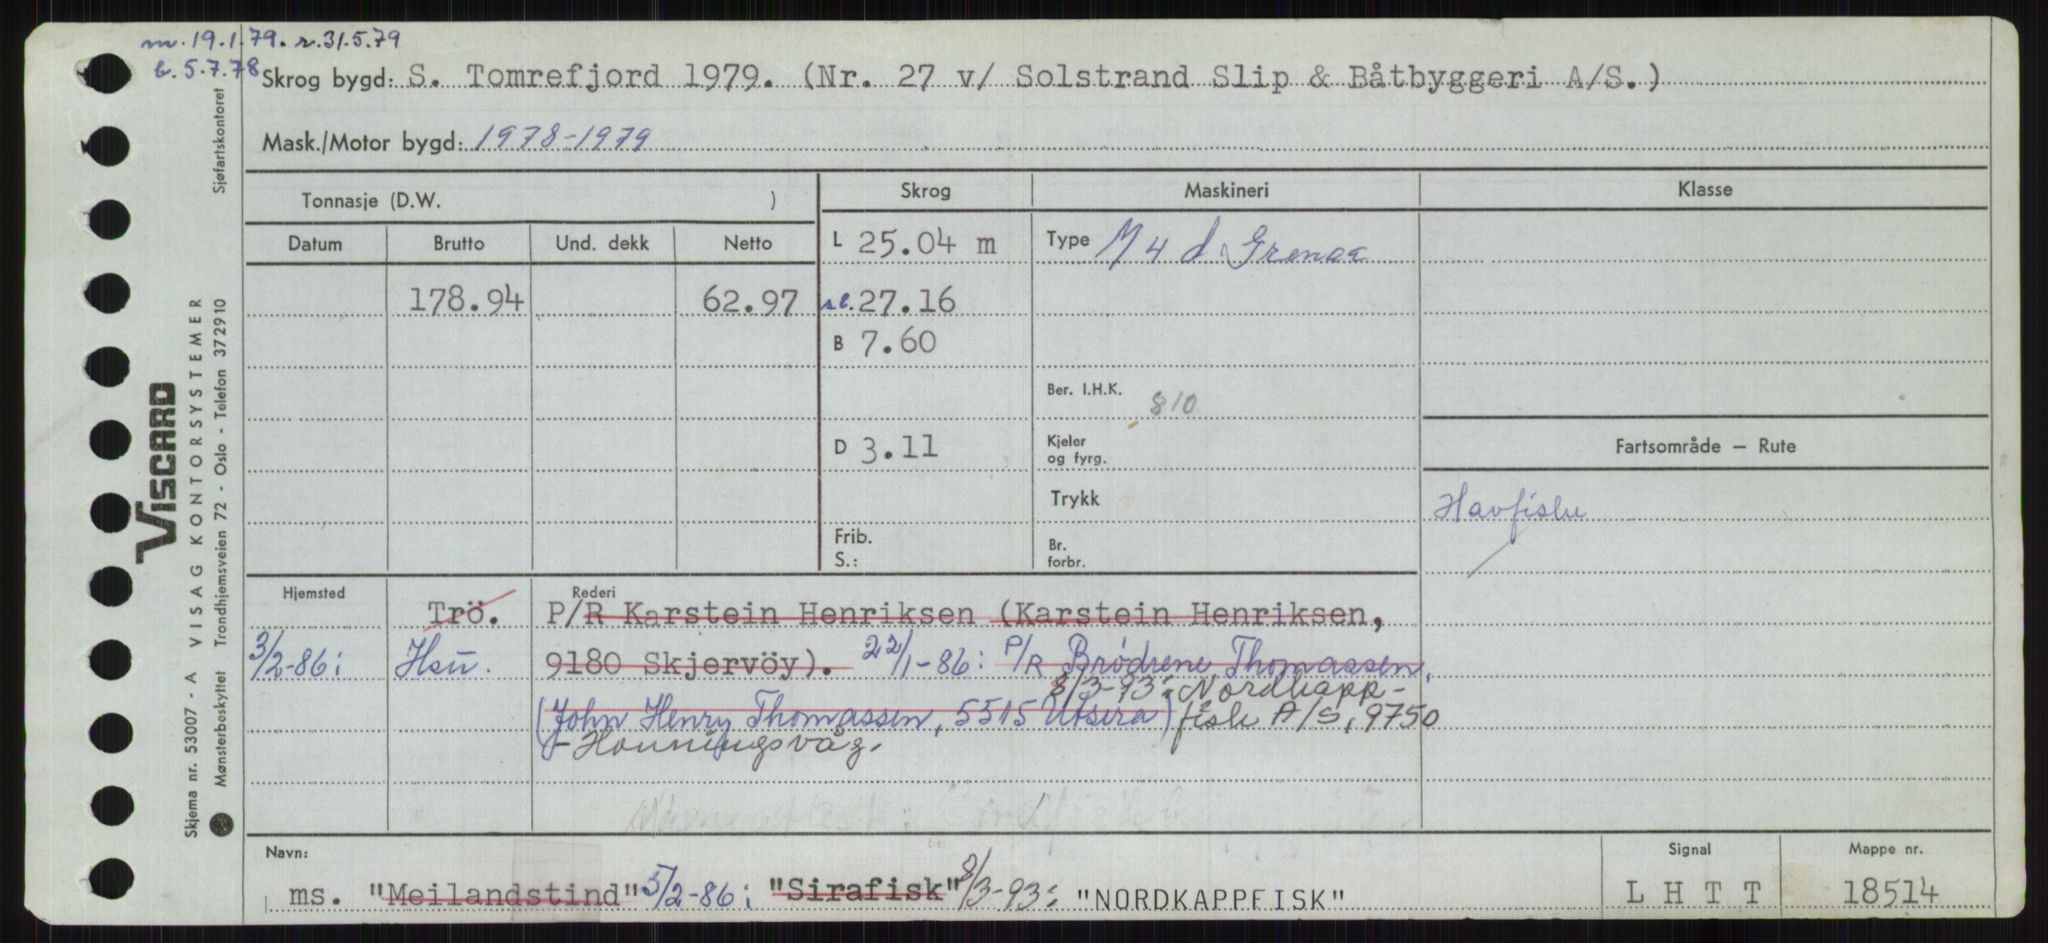 m. 19.1.79. r.31.5.79
b. 5.7.78
Skrog bygd: S. Tomrefjord 1979. (Nr. 27 v/ Solstrand Slip & Båtbyggeri A/S.)
Mask./Motor bygd: 1978-1979
Tonnasje (D.W. )
Skrog
Maskineri
Klasse
Datum
Brutto
Und. dekk
Netto
L 25.04 m
Type M 4 d Grenaa
178.94
62.97
27.16
B 7.60
Ber. I.H.K. 810
D 3.11
Kjeler
og fyrg.
Fartsområde – Rute
Trykk
Havfiske
Frib.
S.:
Br.
forbr.
Hjemsted
Rederi
Trö. P/R Karstein Henriksen (Karstein Henriksen,
3/2-86: Hsu. 9180 Skjervöy). 22/1-86: P/R Brødrene Thomassen,
(John Henry Thomassen, 5515 Utsira) 8/3-93: Nordkapp-
fisk A/S, 9750
- Honningsvåg.
Navn:
Signal
Mappe nr.
ms. "Meilandstind" 5/2-86: "Sirafisk" 8/3-93: "NORDKAPPFISK"
L H T T
18514
VISCARD
Skjema nr. 53007 - A VISAG KONTORSYSTEMER
Mønsterbeskyttet Trondhjemsveien 72 - Oslo - Telefon 372910
Sjøfartskontoret